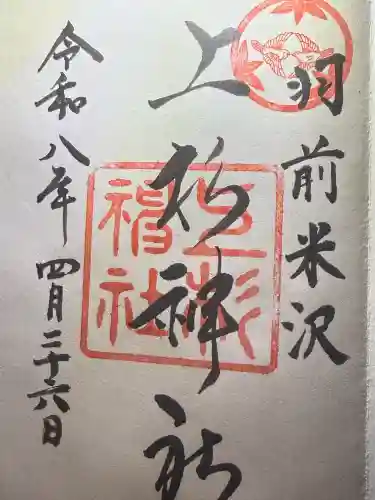 羽前米沢
上杉神社
上杉神社
令和八年四月二十六日